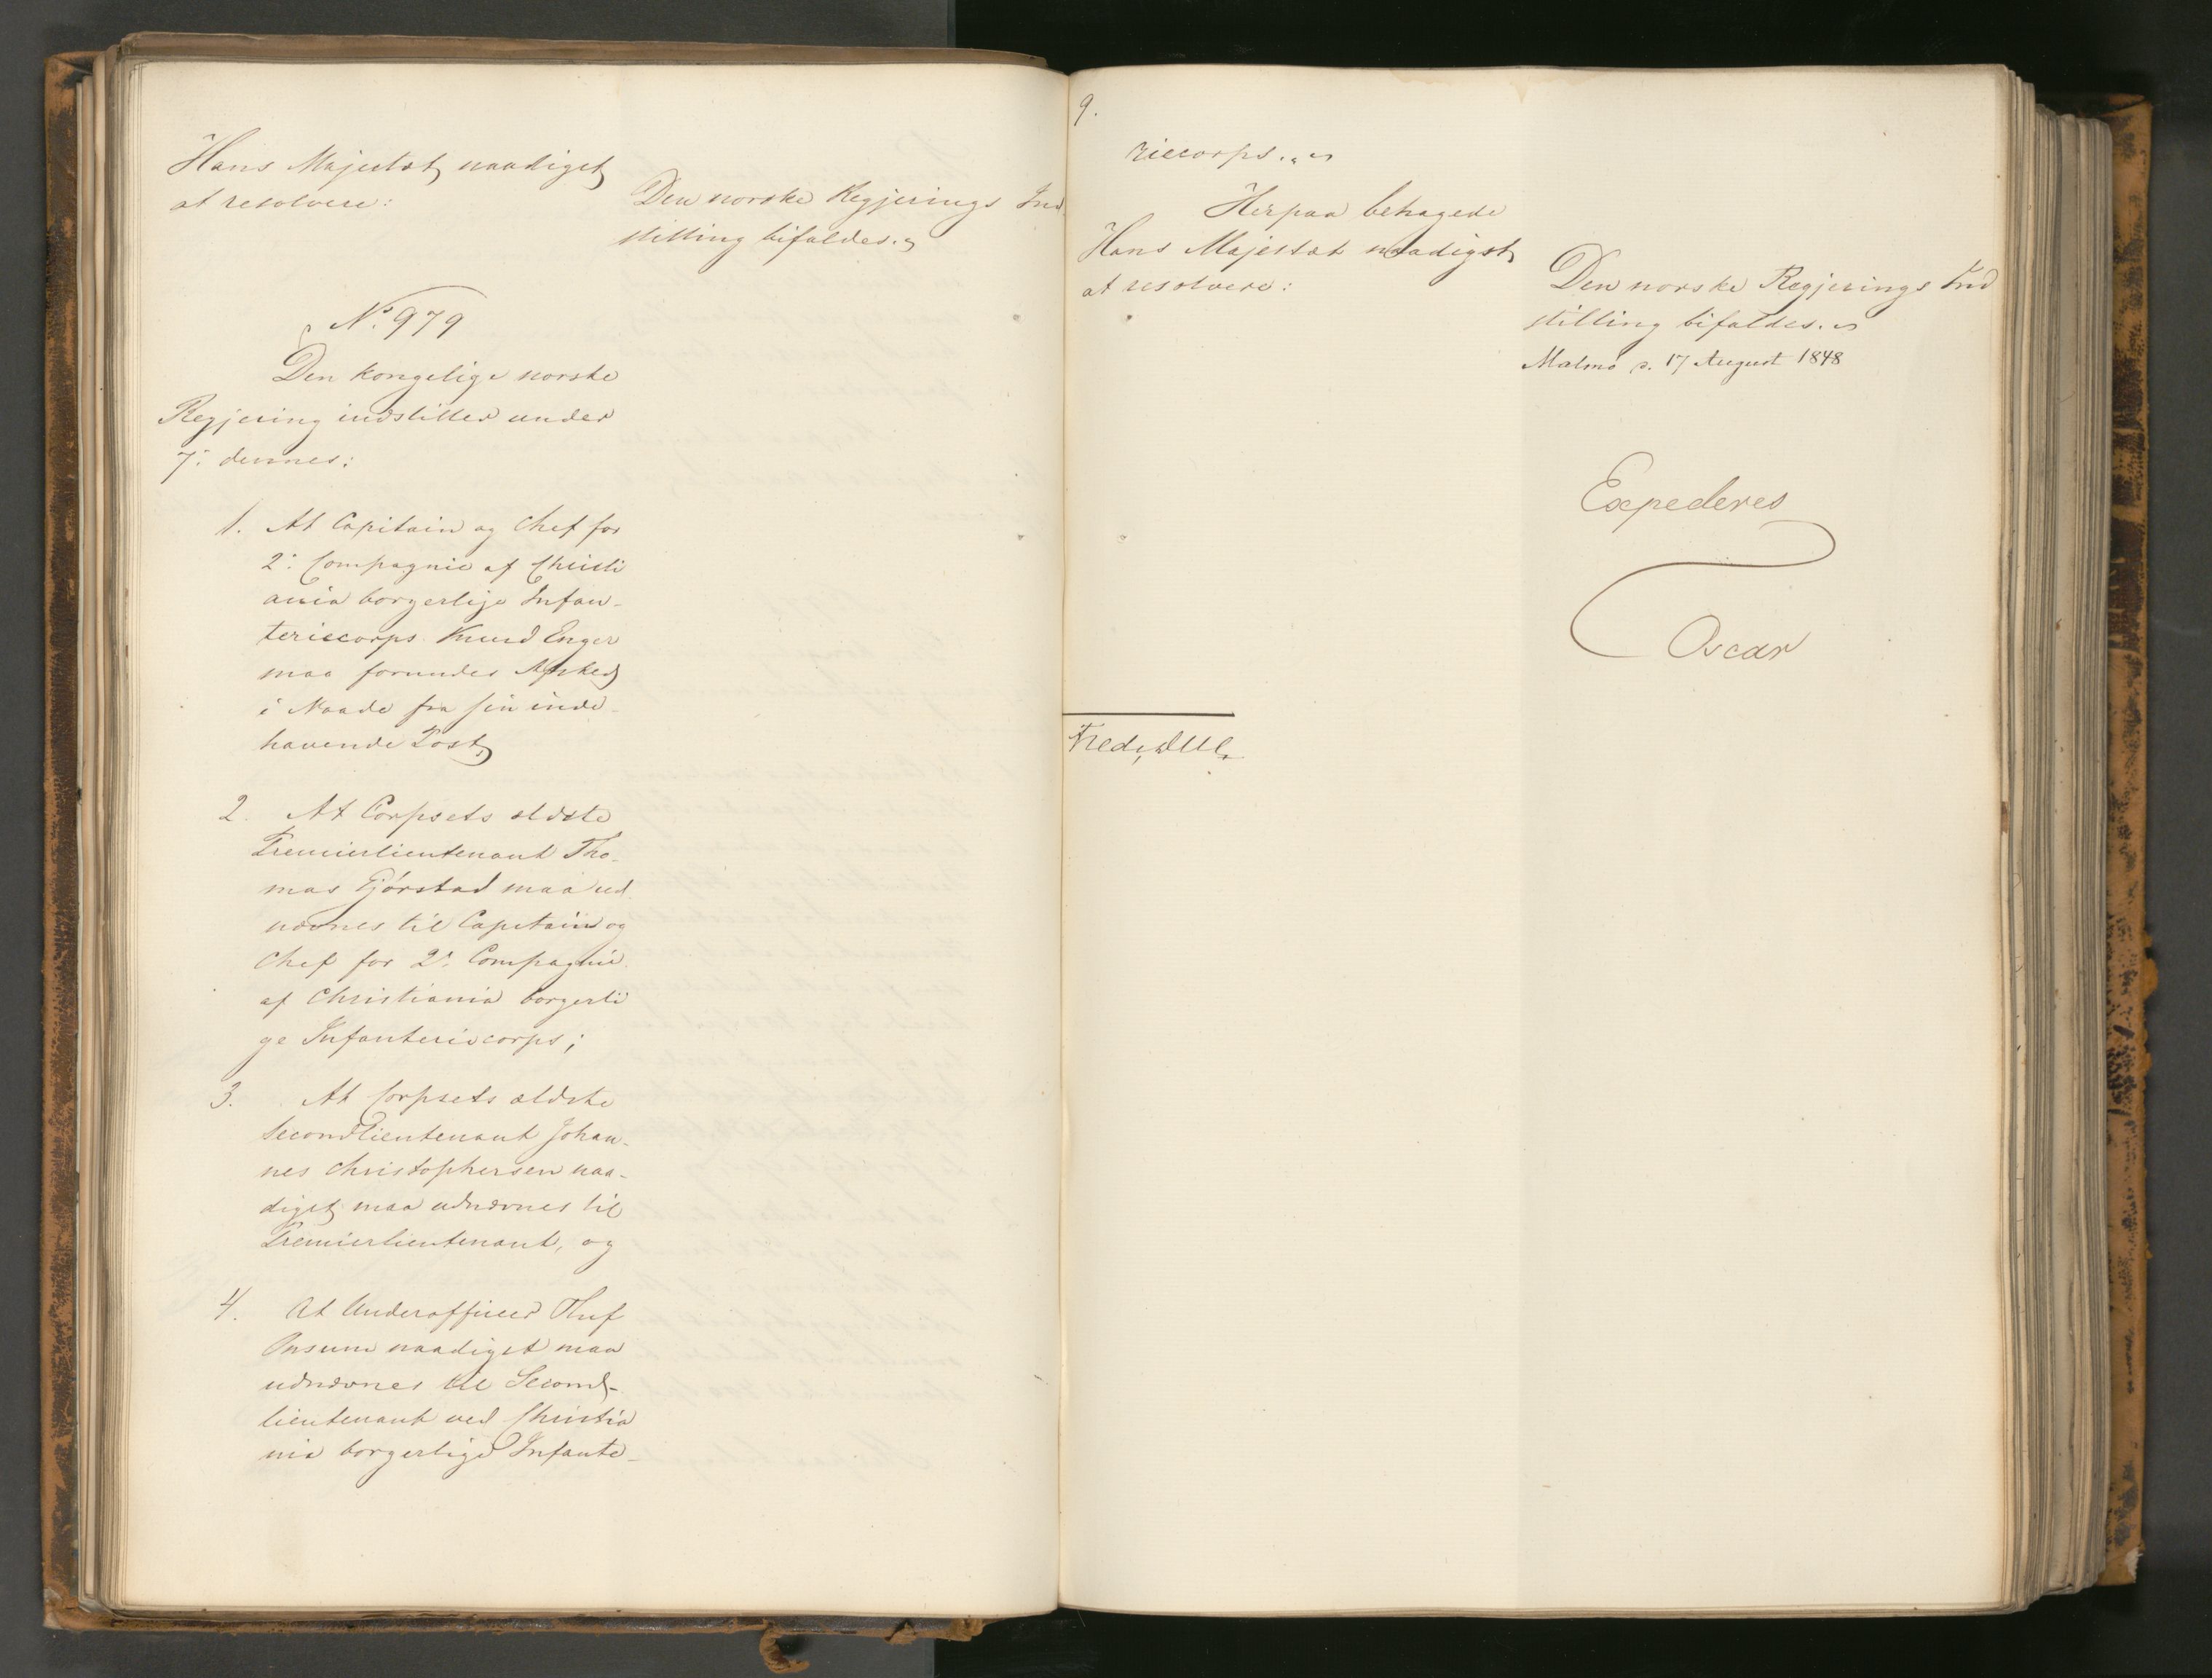 Hans Majestæt naadigst
at resolvere:
Den norske Regjerings Ind
stilling bifaldes.
No. 979
Den kongelige norske
Regjering indstiller under
7de dennes:
1. At Capitain og Chef for
2den Compagnie af Christi
ania borgerlige Infan-
teriecorps Knud Enger
maa forundes Afsked
i Naade fra sin inde-
havende Post,
2. At Corpsets ældste
Premierlieutenant Tho-
mas Gjørstad maa ud
nævnes til Capitain og
Chef for 2det Compagnie
af Christiania borgerli
ge Infanteriecorps;
3. At Corpsets ældste
Secondlieutenant Johan-
nes Christophersen naa-
digst maa udnævnes til
Premierlieutenant, og
4. At Underofficer Thuf
naadigst maa
udnævnes til Second-
lieutenant ved Christia
nia borgerlige Infante-
9.
riecorps.
Herpaa behagede
Hans Majestæt naadigst
at resolvere:
Den norske Regjerings Ind
stilling bifaldes.
Malmø d. 17 August 1848
Expederes
Oscar